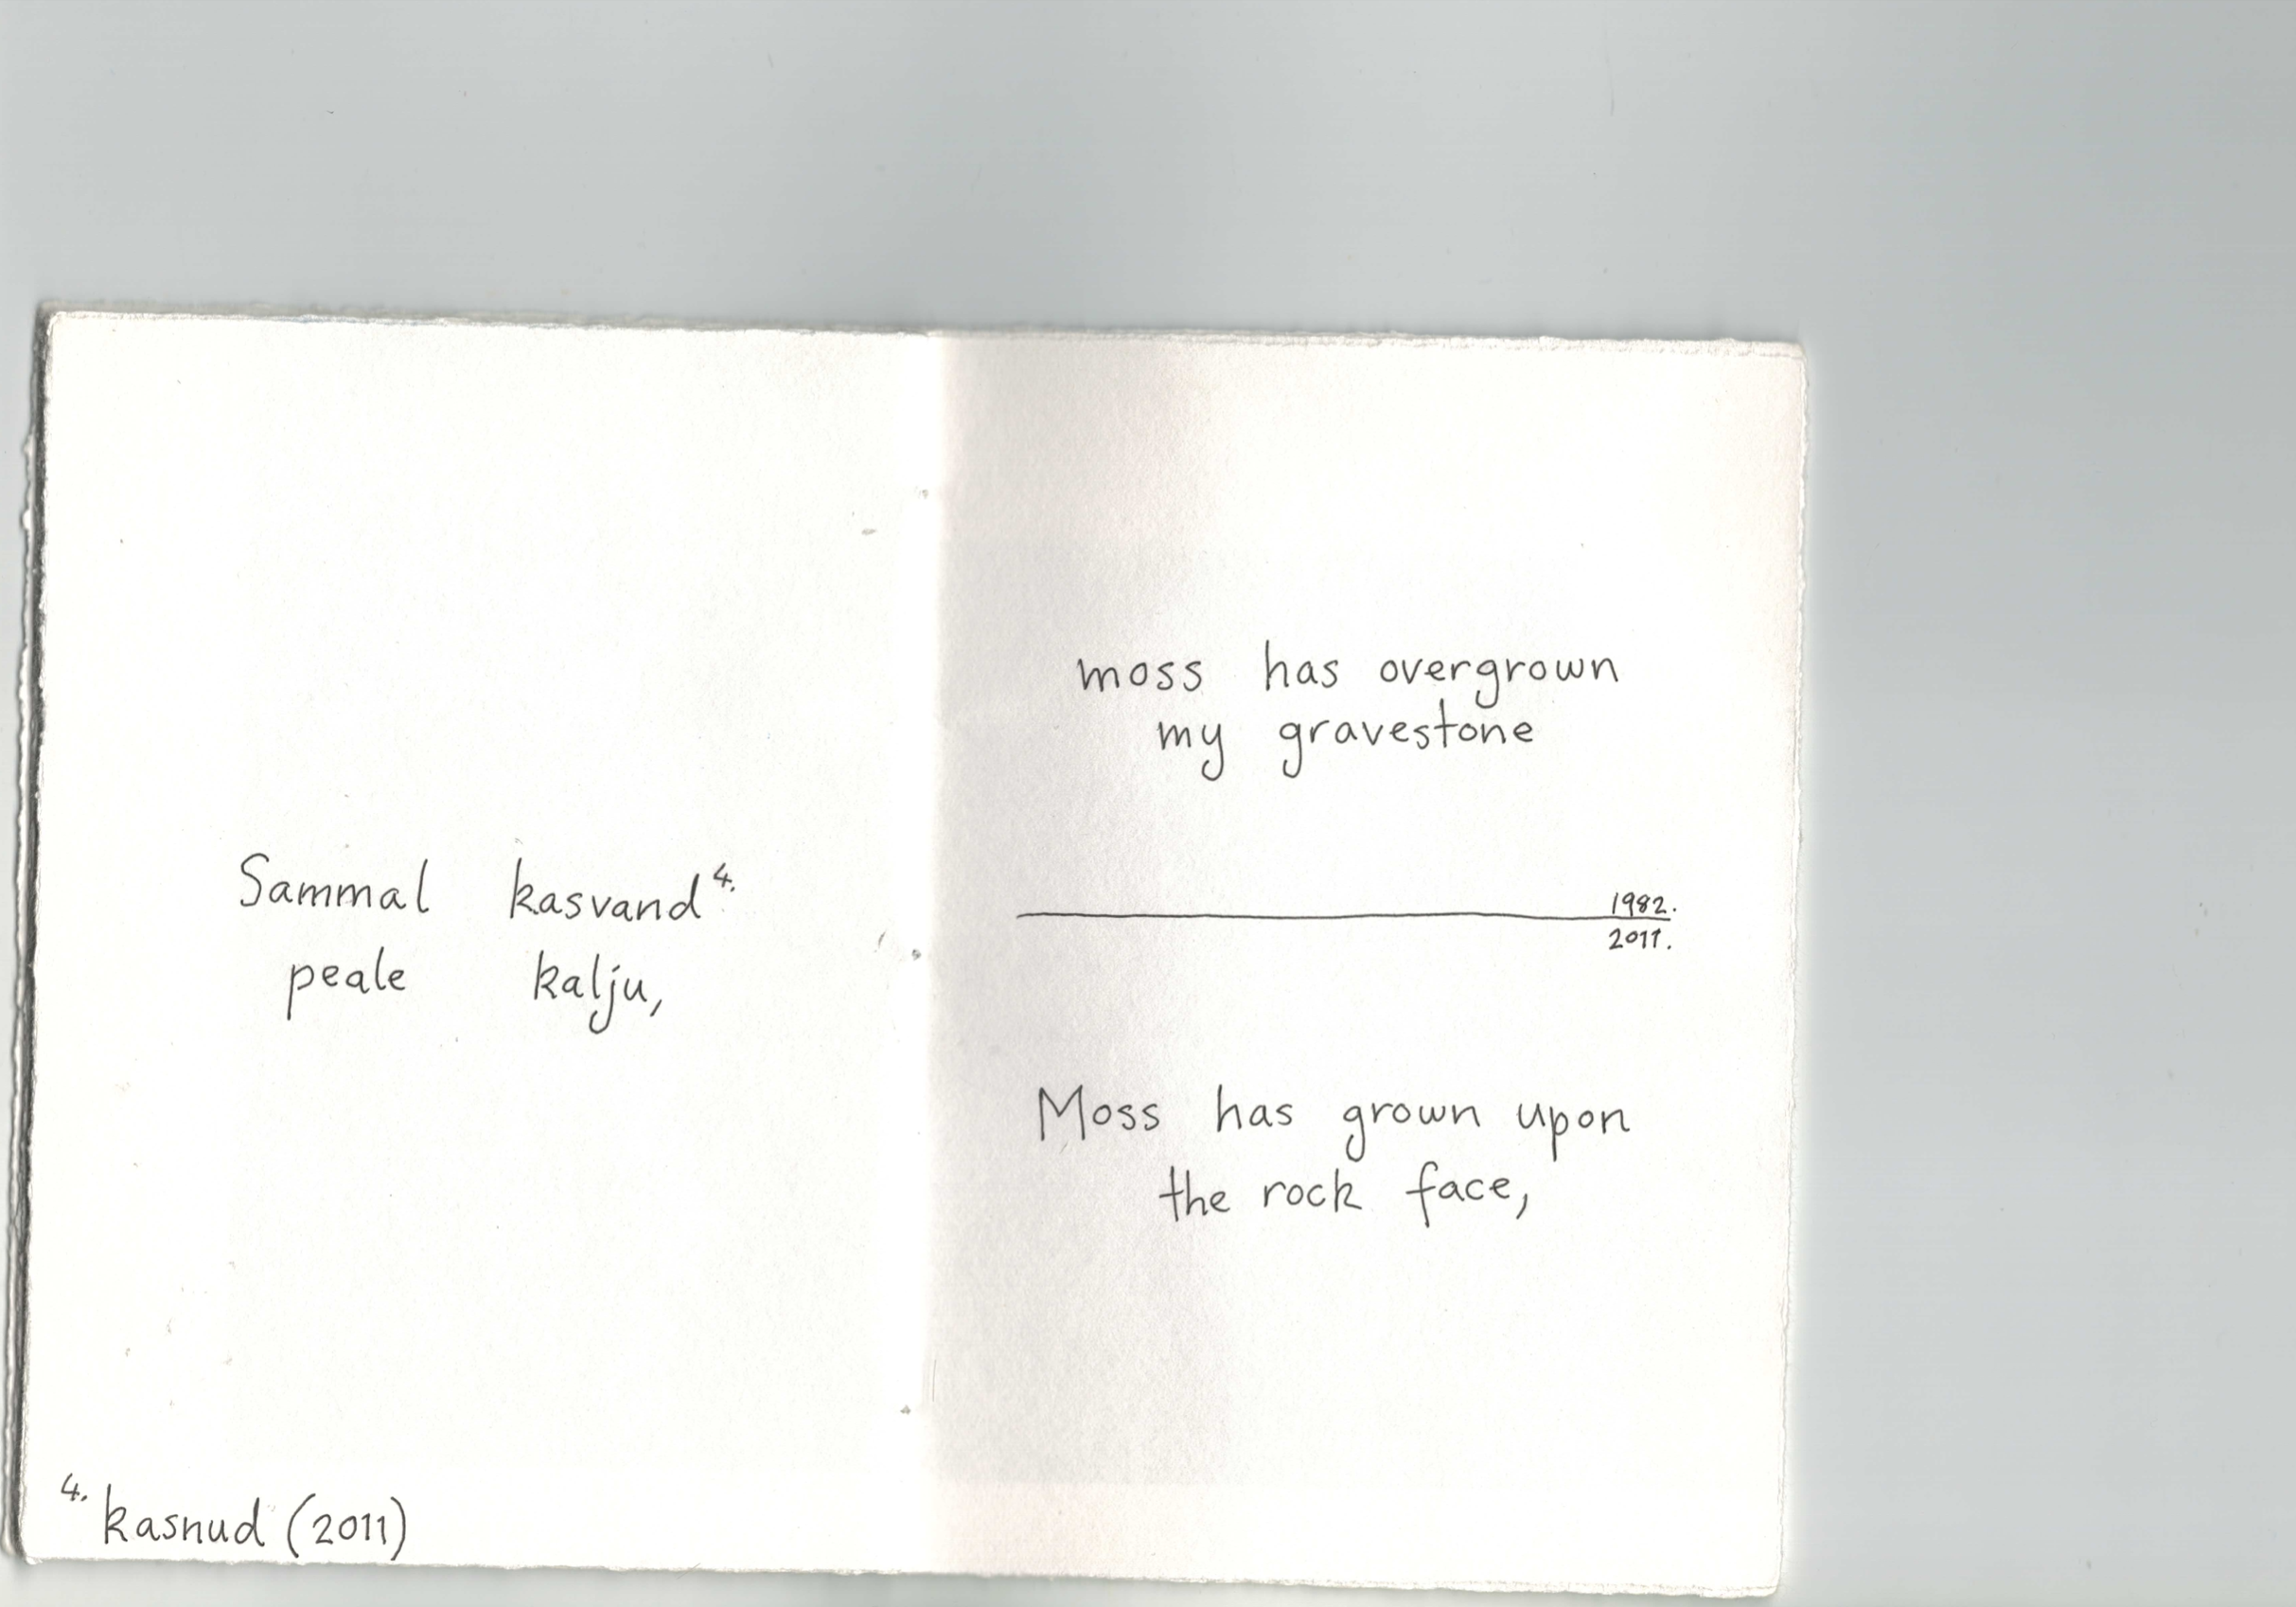 Sammal kasvand 4.
peale kalju,
4. kasnud (2011)
moss has overgrown
my gravestone
1982.
2011.
Moss has grown upon
the rock face,